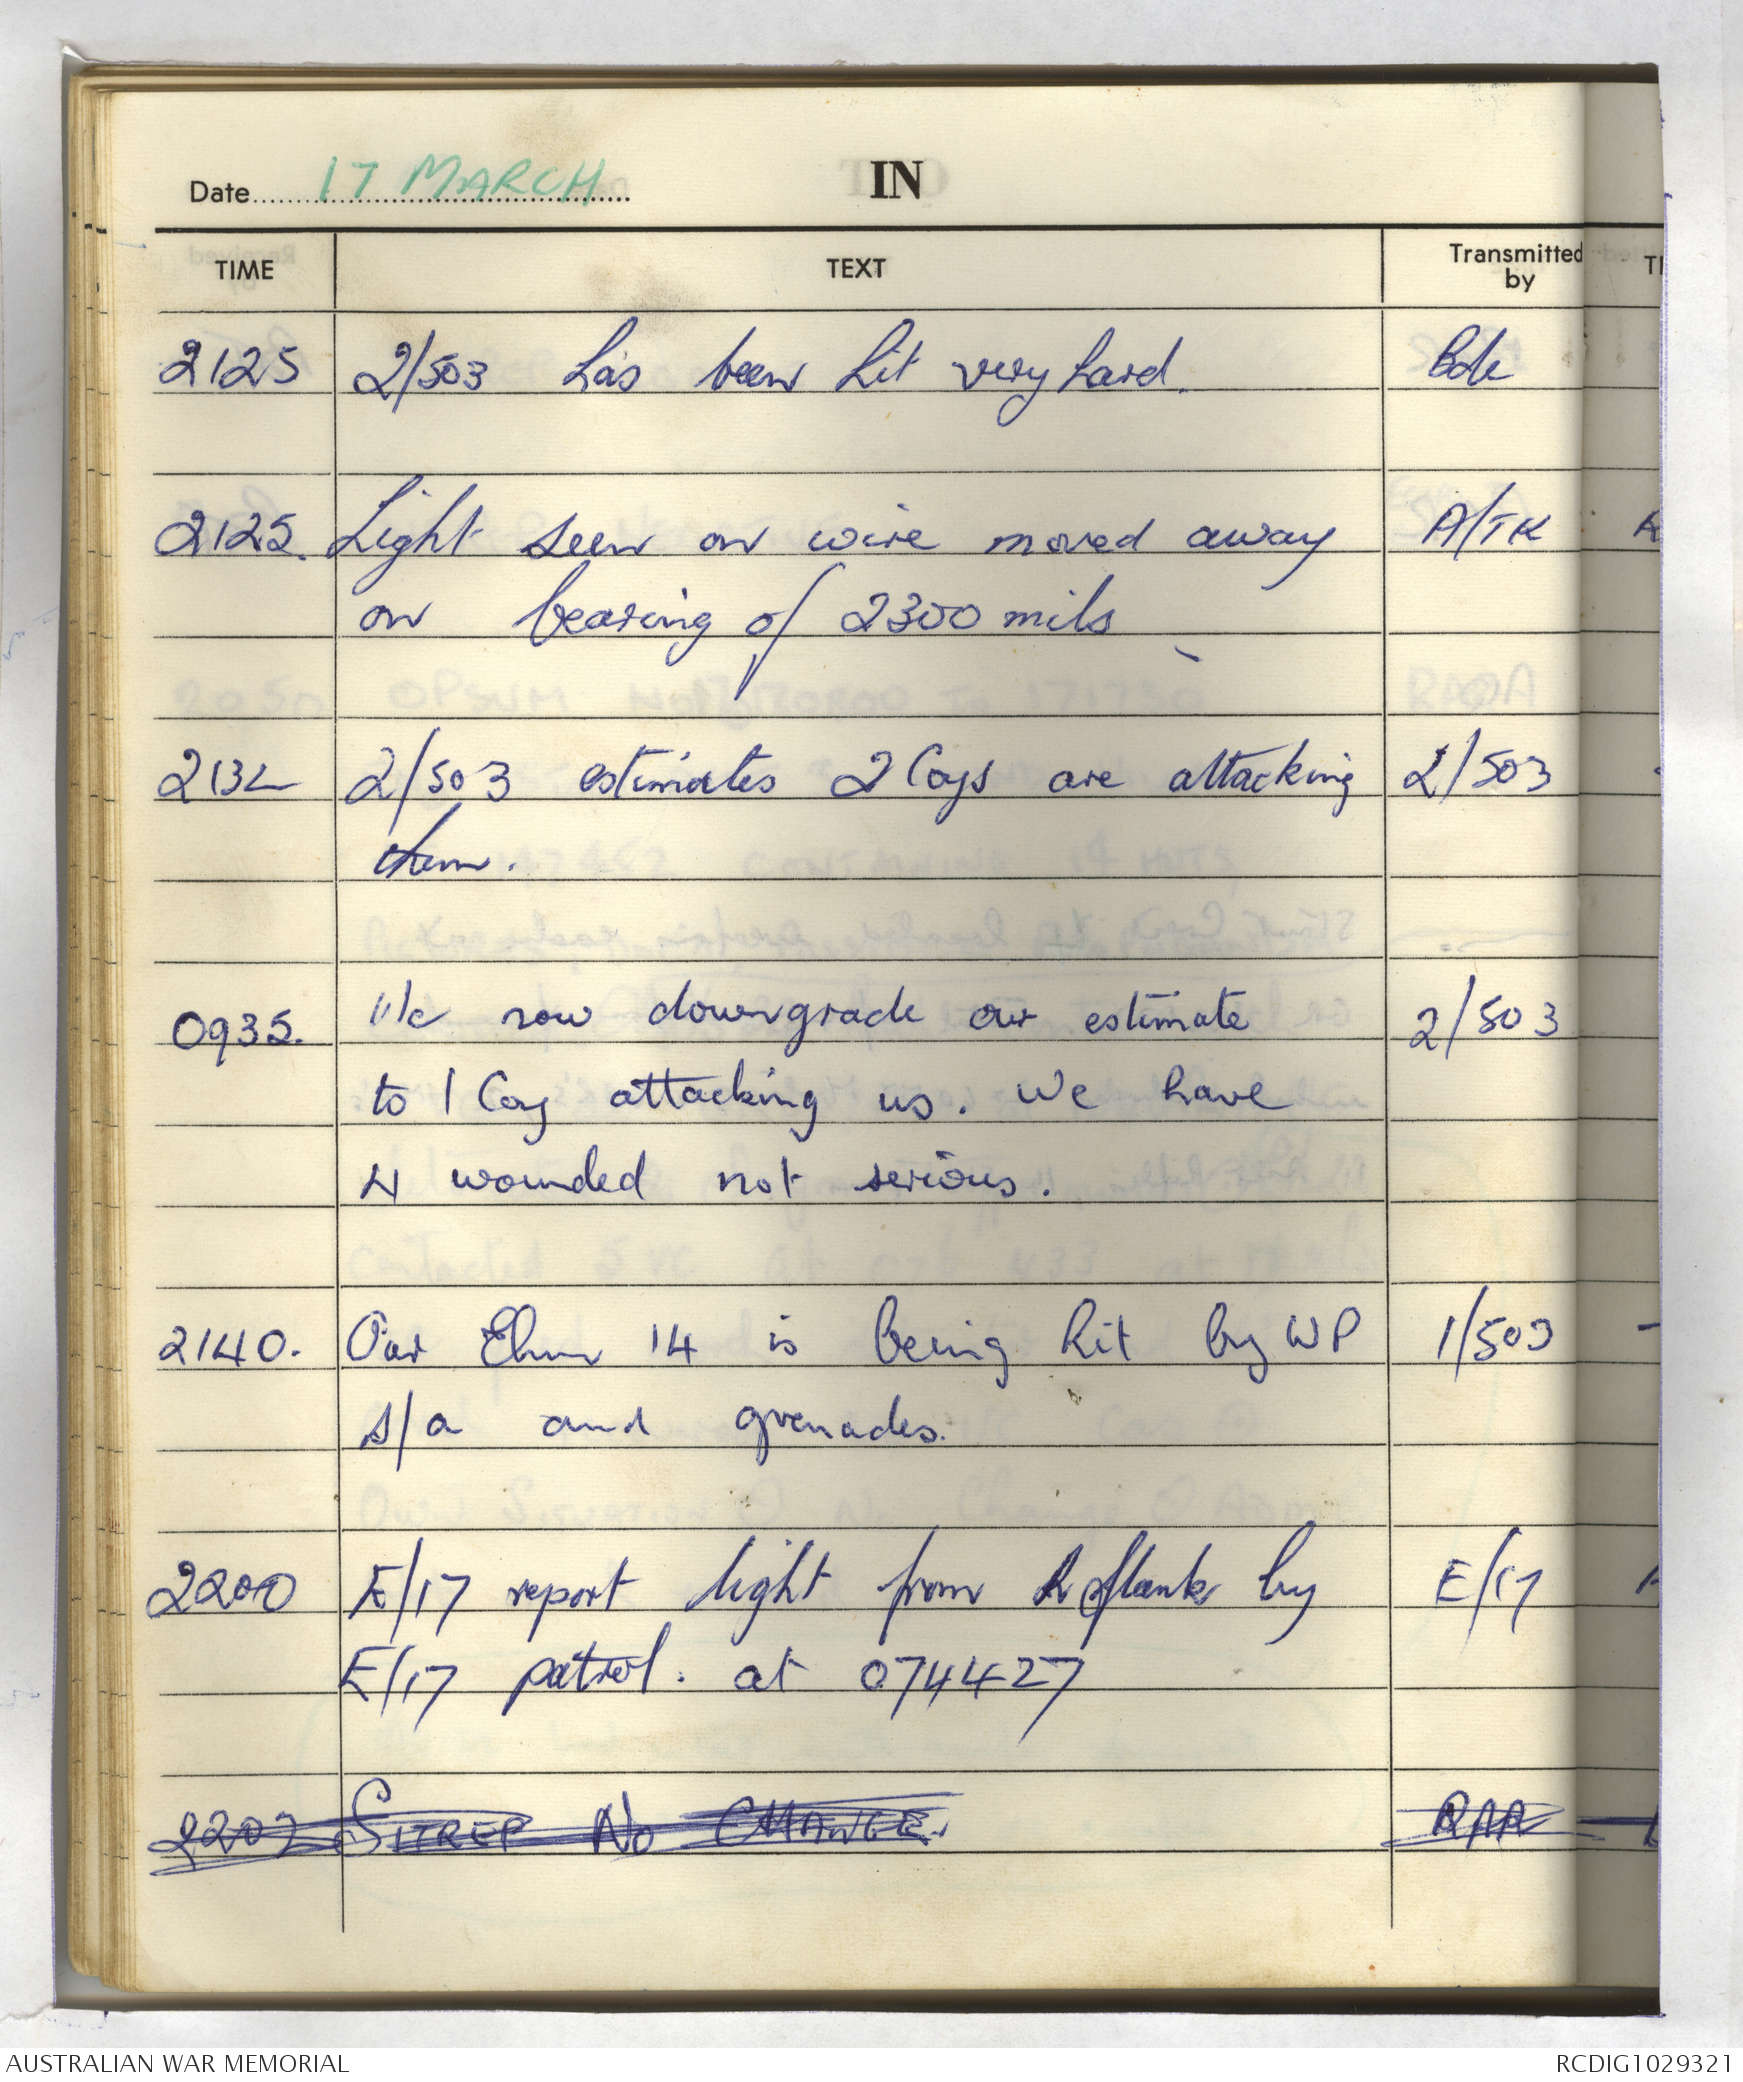 Date 17 MARCH IN
TIME TEXT Transmitted by
2125 2/503 has been hit very hard. Bde
2125. Light seen on wire moved away A/TK
on bearing of 2300 mils
2132 2/503 estimates 2 Coys are attacking 2/503
them.
0935. We now downgrade our estimate 2/503
to 1 Coy attacking us. We have
4 wounded not serious.
2140. Our Elm 14 is being hit by WP 1/503
s/a and grenades.
2200 E/17 report light from R flank by E/17
E/17 patrol. at 074427
2207 SITREP No CHANGE. RAR
AUSTRALIAN WAR MEMORIAL RCDIG1029321